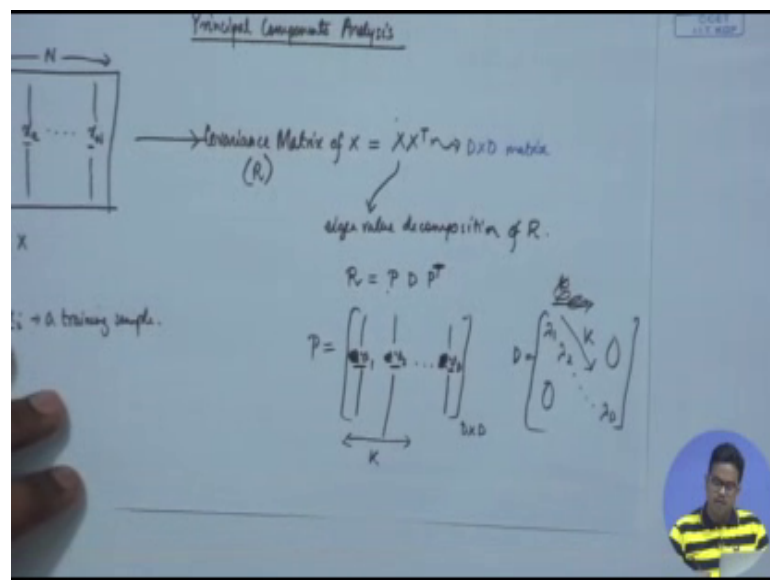 Principal Components Analysis
← N →
x₂ .... x_N
→ Covariance Matrix of X = XXᵀ ⇝ D×D matrix
(R)
X
eigen value decomposition of R.
R = P D Pᵀ
→ a training sample.
P = [v₁ v₂ ... v_D] D×D
K
D = [λ₁ λ₂ ⋱ λ_D] 0 0
K
I.I.T. KGP